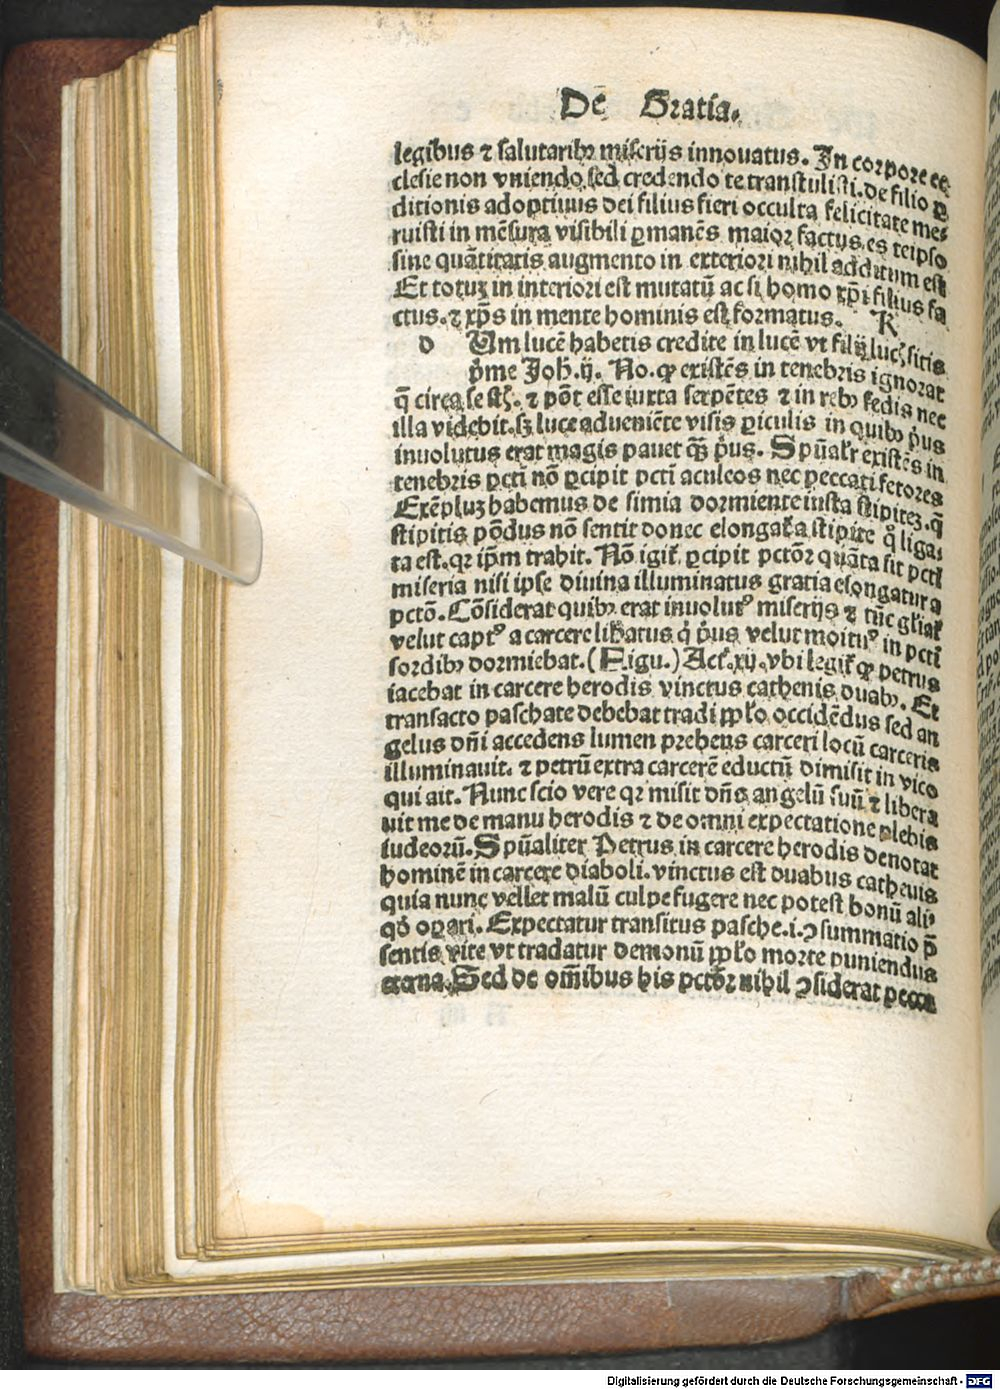 De Gratia.
legibus ⁊ salutaribꝰ miserijs innouatus. In corpore ec
clesie non vniendo sed credendo te transtulisti. de filio ꝑ
ditionis adoptiuus dei filius fieri occulta felicitate me⸗
ruisti in mēsura visibili ꝑmanēs maior factus es teipso
sine quātitatis augmento in exteriori nihil additum est
Et totuꝫ in interiori est mutatū ac si homo xp̄i filius fa
ctus. ⁊ xp̄s in mente hominis est formatus. K
d Um lucē habetis credite in lucē vt filij luc sitis
p̄me Joh. ij. No. ꝙ existēs in tenebris ignorat
q̄ circa se st. ⁊ pōt esse iuxta serpētes ⁊ in rebꝰ fedis nec
illa videbit. sꝫ luce adueniēte visis ꝑiculis in quibꝰ p̄us
inuolutus erat magis pauet qᷓꝫ p̄us. Spūalr existēs in
tenebris pcti nō ꝑcipit pcti aculeos nec peccati fetores
Exēpluꝫ habemus de simia dormiente iuxta stipiteꝫ. q̄
stipitis pōdus nō sentit donec elongata a stipite q̊ liga⸗
ta est. qꝛ ip̄m trahit. Nō igit ꝑcipit pctōꝛ quāta sit pcti
miseria nisi ipse diuina illuminatus gratia elongatura
pctō. Cōsiderat quibꝰ erat inuolutꝰ miserijs ⁊ tūc gliat
velut captꝰ a carcere libatus q̇ p̄us velut mortuꝰ in pcti
sordibꝰ dormiebat. (Figu.) Act. xij. vbi legit ꝙ petrus
iacebat in carcere herodis vinctus cathenis duabꝰ. Et
transacto paschate debebat tradi pplo occidēdus sed an
gelus dn̄i accedens lumen prebens carceri locū carceris
illuminauit. ⁊ petrū extra carcerē eductū dimisit in vico
qui ait. Nunc scio vere qꝛ misit dn̄s angelū suū ⁊ libera
uit me de manu herodis ⁊ de omni expectatione plebis
iudeorū. Spūaliter Petrus in carcere herodis denotat
hominē in carcere diaboli. vinctus est duabus cathenis
quia nunc vellet malū culpe fugere nec potest bonū ali⸗
qd oꝑari. Expectatur transitus pasche. i. ꝯsummatio p̄
sentis vite vt tradatur demonū pplo morte puniendus
eterna. Sed de om̄ibus his pctōꝛ nihil ꝯsiderat pecca
Digitalisierung gefördert durch die Deutsche Forschungsgemeinschaft - DFG